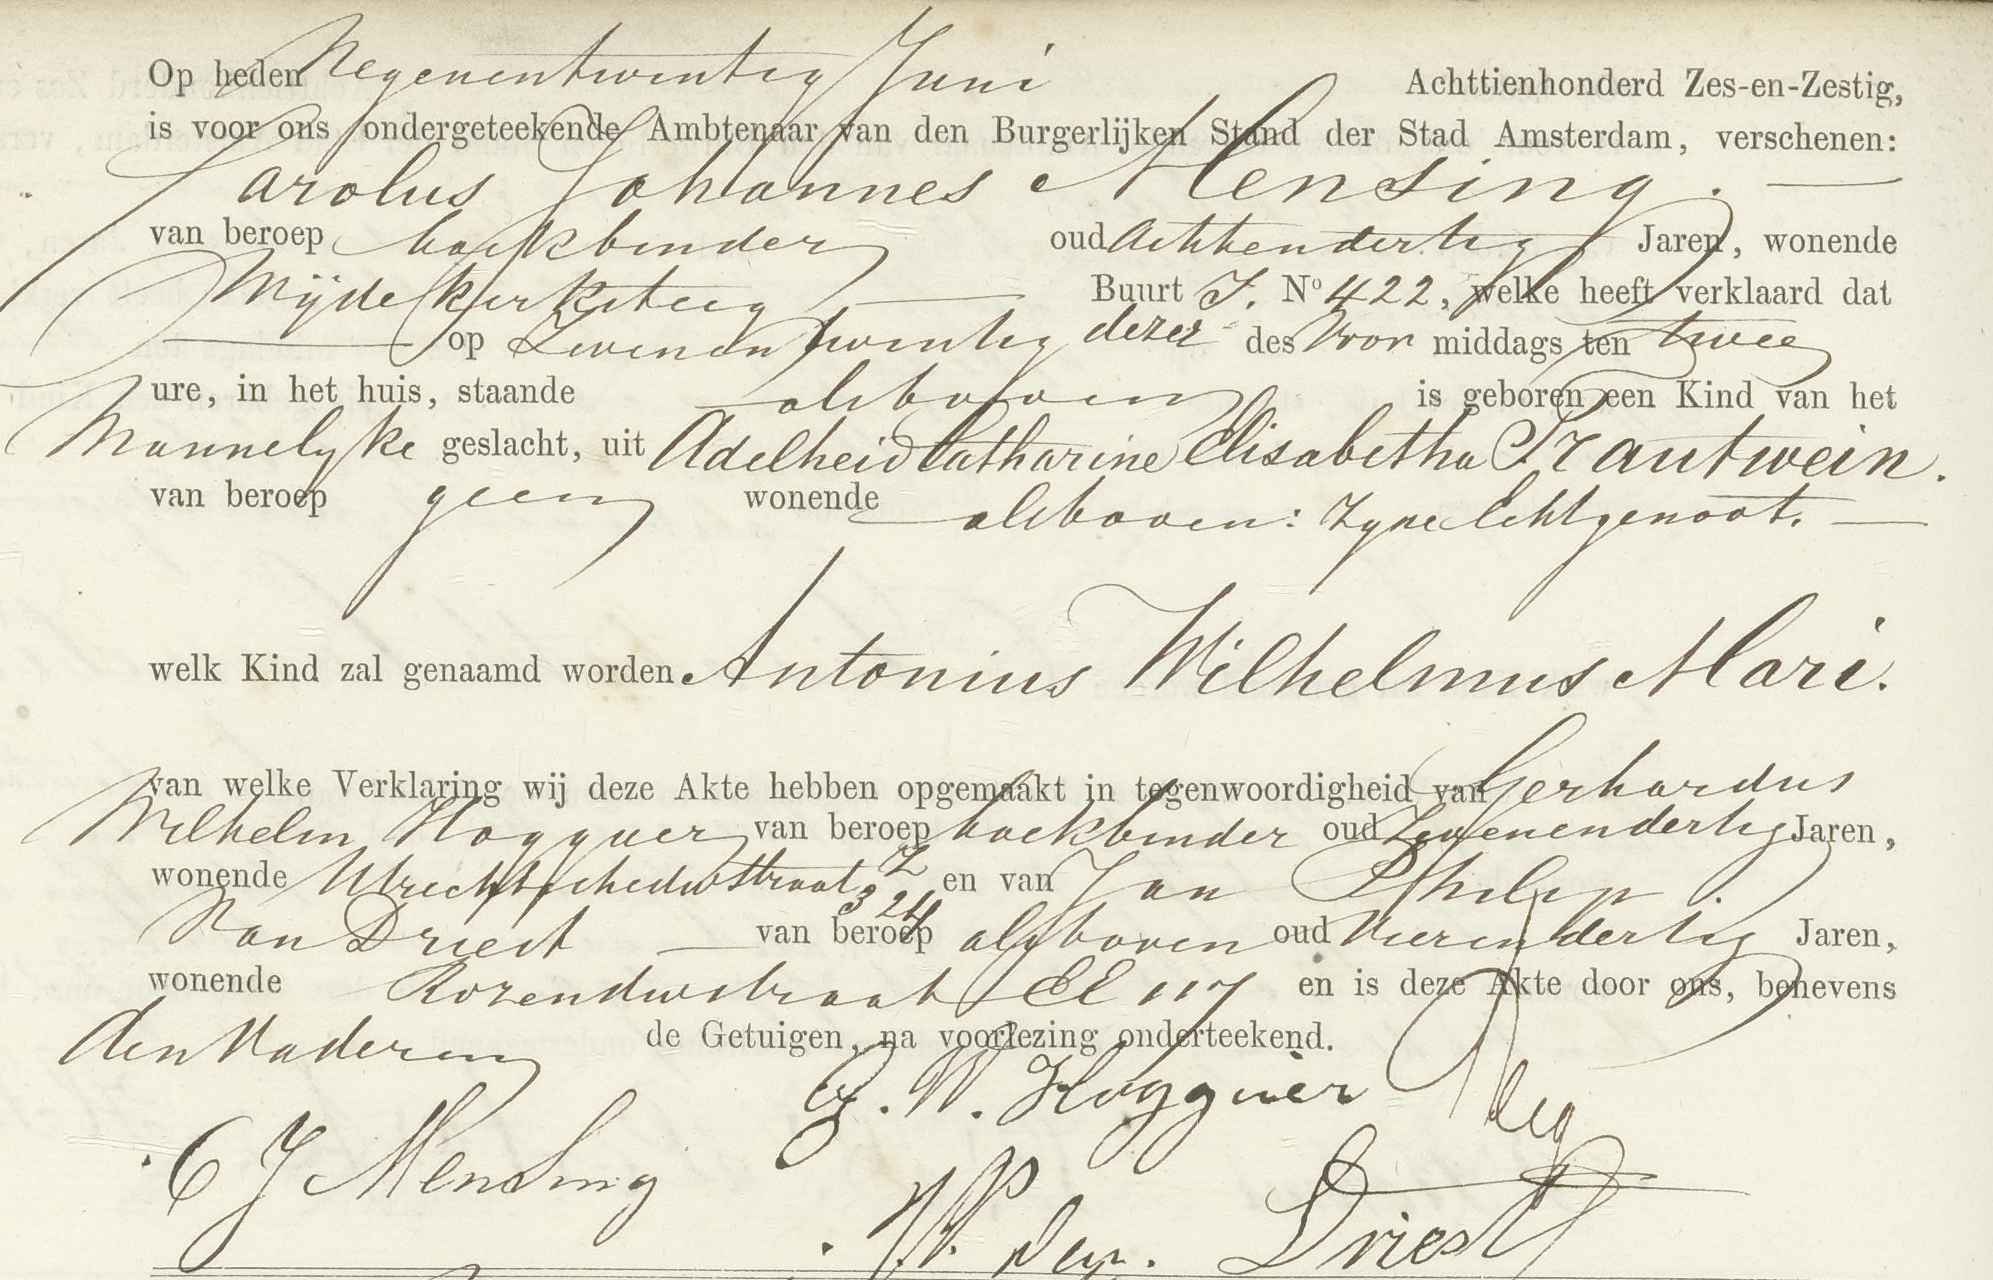 Op heden Negenentwintig Juni Achttienhonderd Zes-en-Zestig,
is voor ons ondergeteekende Ambtenaar van den Burgerlijken Stand der Stad Amsterdam, verschenen:
Carolus Johannes Mensing.
van beroep boekbinder oud Achtendertig Jaren, wonende
Wijdekerksteeg Buurt J. No 422, welke heeft verklaard dat
op Zevenentwintig dezer des Voor middags ten twee
ure, in het huis, staande alsboven is geboren een Kind van het
Mannelyke geslacht, uit Adelheid Catharine Elisabetha Trautwein.
van beroep geen wonende alsboven: Zyne Echtgenoot.
welk Kind zal genaamd worden Antonius Wilhelmus Mari.
van welke Verklaring wij deze Akte hebben opgemaakt in tegenwoordigheid van Gerhardus
Wilhelm Hogguer van beroep boekbinder oud Zevenendertig Jaren,
wonende Utrechtschedwstraat Z 324 en van Jan Philip
Van Driest van beroep alsboven oud Vierendertig Jaren,
wonende Rozendwstraat EE 117 en is deze Akte door ons, benevens
den Vader en de Getuigen, na voorlezing onderteekend.
G. W. Hogguer
C J Mensing
Driest